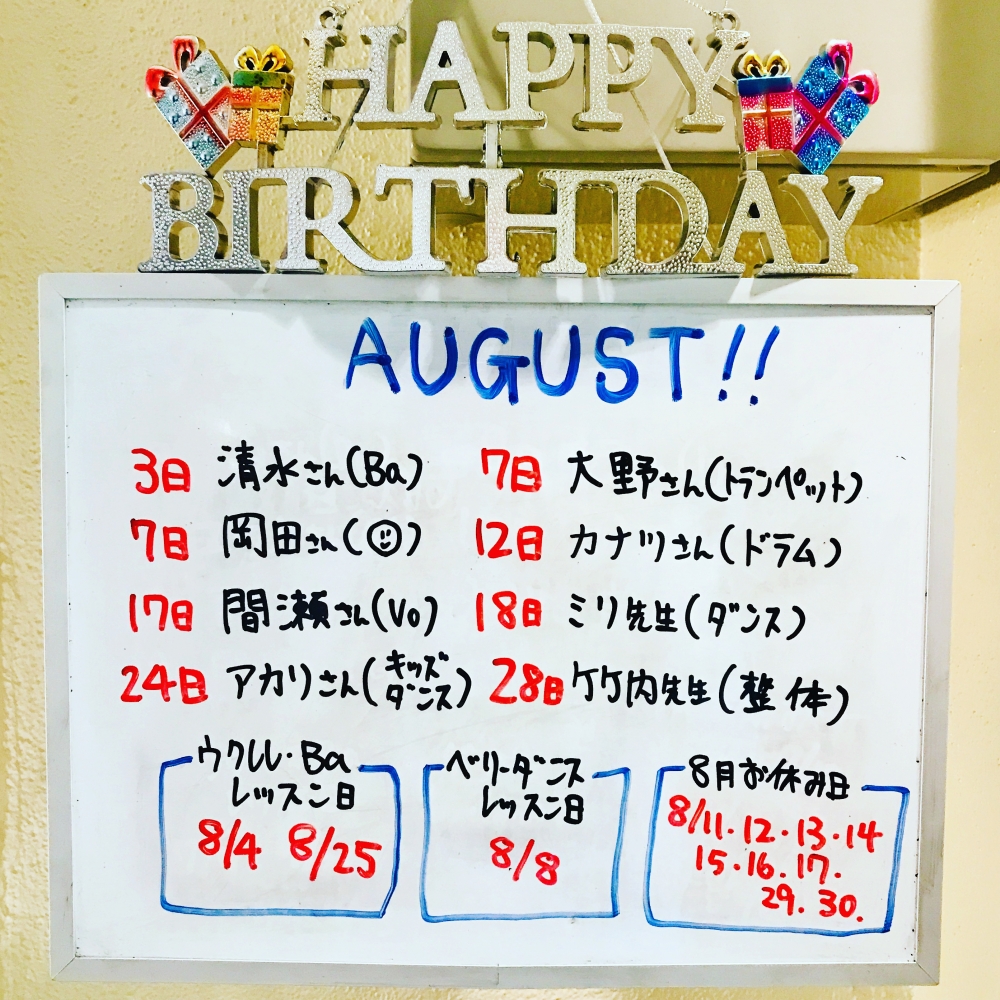 HAPPY
BIRTHDAY
AUGUST!!
3日 清水さん(Ba) 7日 大野さん(トランペット)
7日 岡田さん(☺) 12日 カナツさん(ドラム)
17日 間瀬さん(Vo) 18日 ミリ先生(ダンス)
24日 アカリさん(キッズダンス) 28日 竹内先生(整体)
ウクレレ・Ba
レッスン日
8/4 8/25
ベリーダンス
レッスン日
8/8
8月お休み日
8/11・12・13・14
15・16・17・
29. 30.